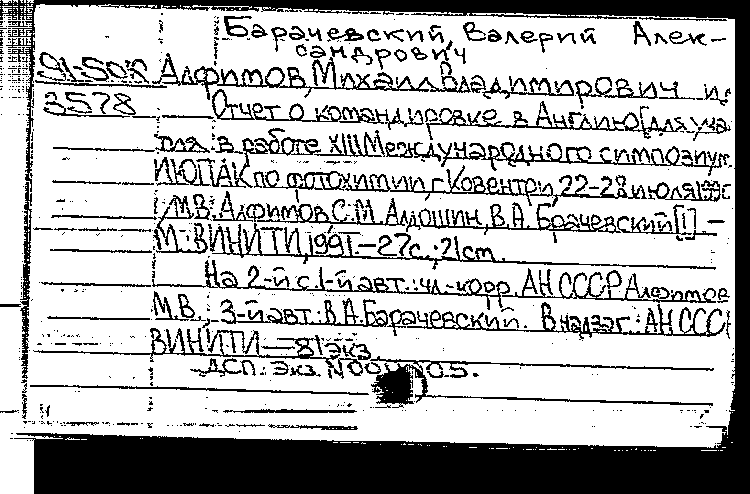 Барачевский, Валерий Алек-
сандрович
91-50К Алфимов, Михаил Владимирович и
3578 Отчет о командировке в Англию [для уча
тия в работе XIII Международного симпозиум
ИЮПАК по фотохимии, г. Ковентри, 22-28 июля 1990
/ М.В. Алфимов, С.М. Алдошин, В.А. Брачевский [!]. -
М.: ВИНИТИ, 1991. - 27 с.; 21 см.
На 2-й с. 1-й авт.: чл.-корр. АН СССР Алфимов
М.В., 3-й авт.: В.А. Барачевский. В надзаг.: АН СССР
ВИНИТИ — 81 экз.
ДСП. Экз. N 00005.